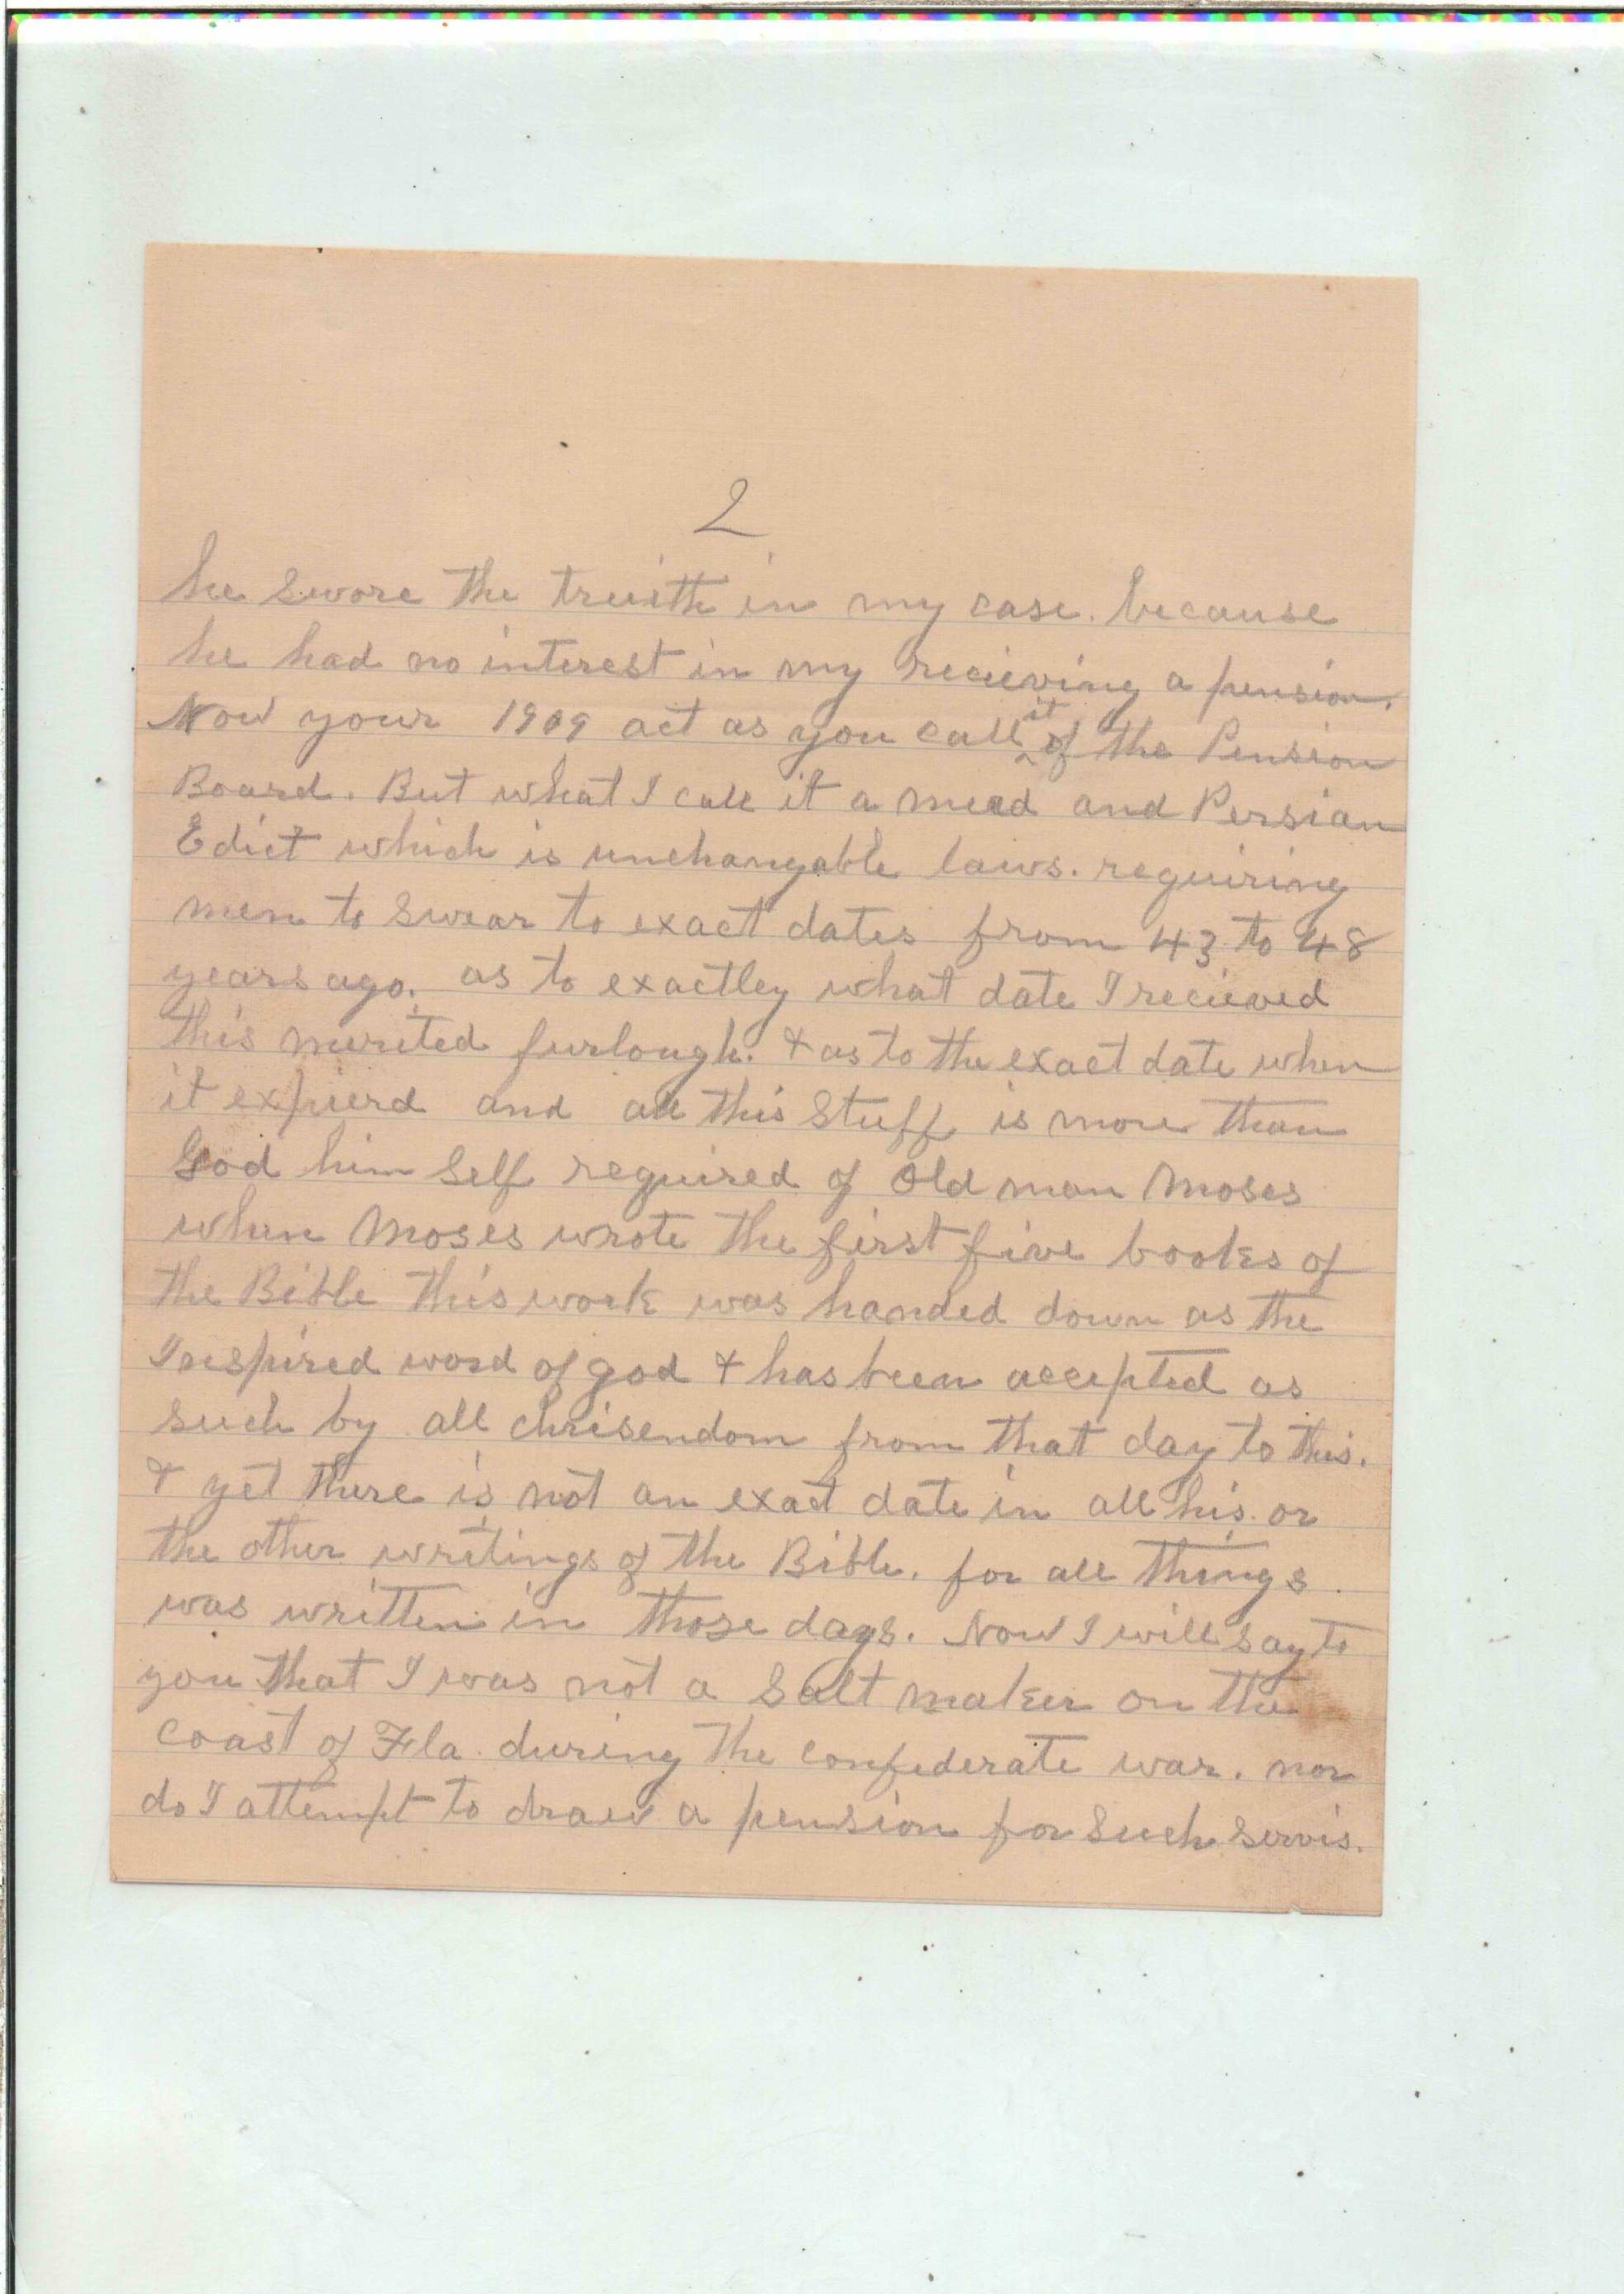 2
he swore the truith in my case. because
he had no interest in my recieving a pension.
Now your 1909 act as you call it of the Pension
Board. But what I call it a mead and Persian
Edict which is unchangable laws. requiring
men to swear to exact dates from 43 to 48
years ago. as to exactley what date I recieved
this merited furlough. & as to the exact date when
it expierd and all this stuff is more than
God him self required of old man Moses
when Moses wrote the first five books of
the Bible this work was handed down as the
Inspired word of god & has been accepted as
such by all chrisendom from that day to this.
& yet there is not an exact date in all his or
the other writings of the Bible. for all things
was written in those days. Now I will say to
you that I was not a Salt maker on the
coast of Fla. during the confederate war. nor
do I attempt to draw a pension for such servis.